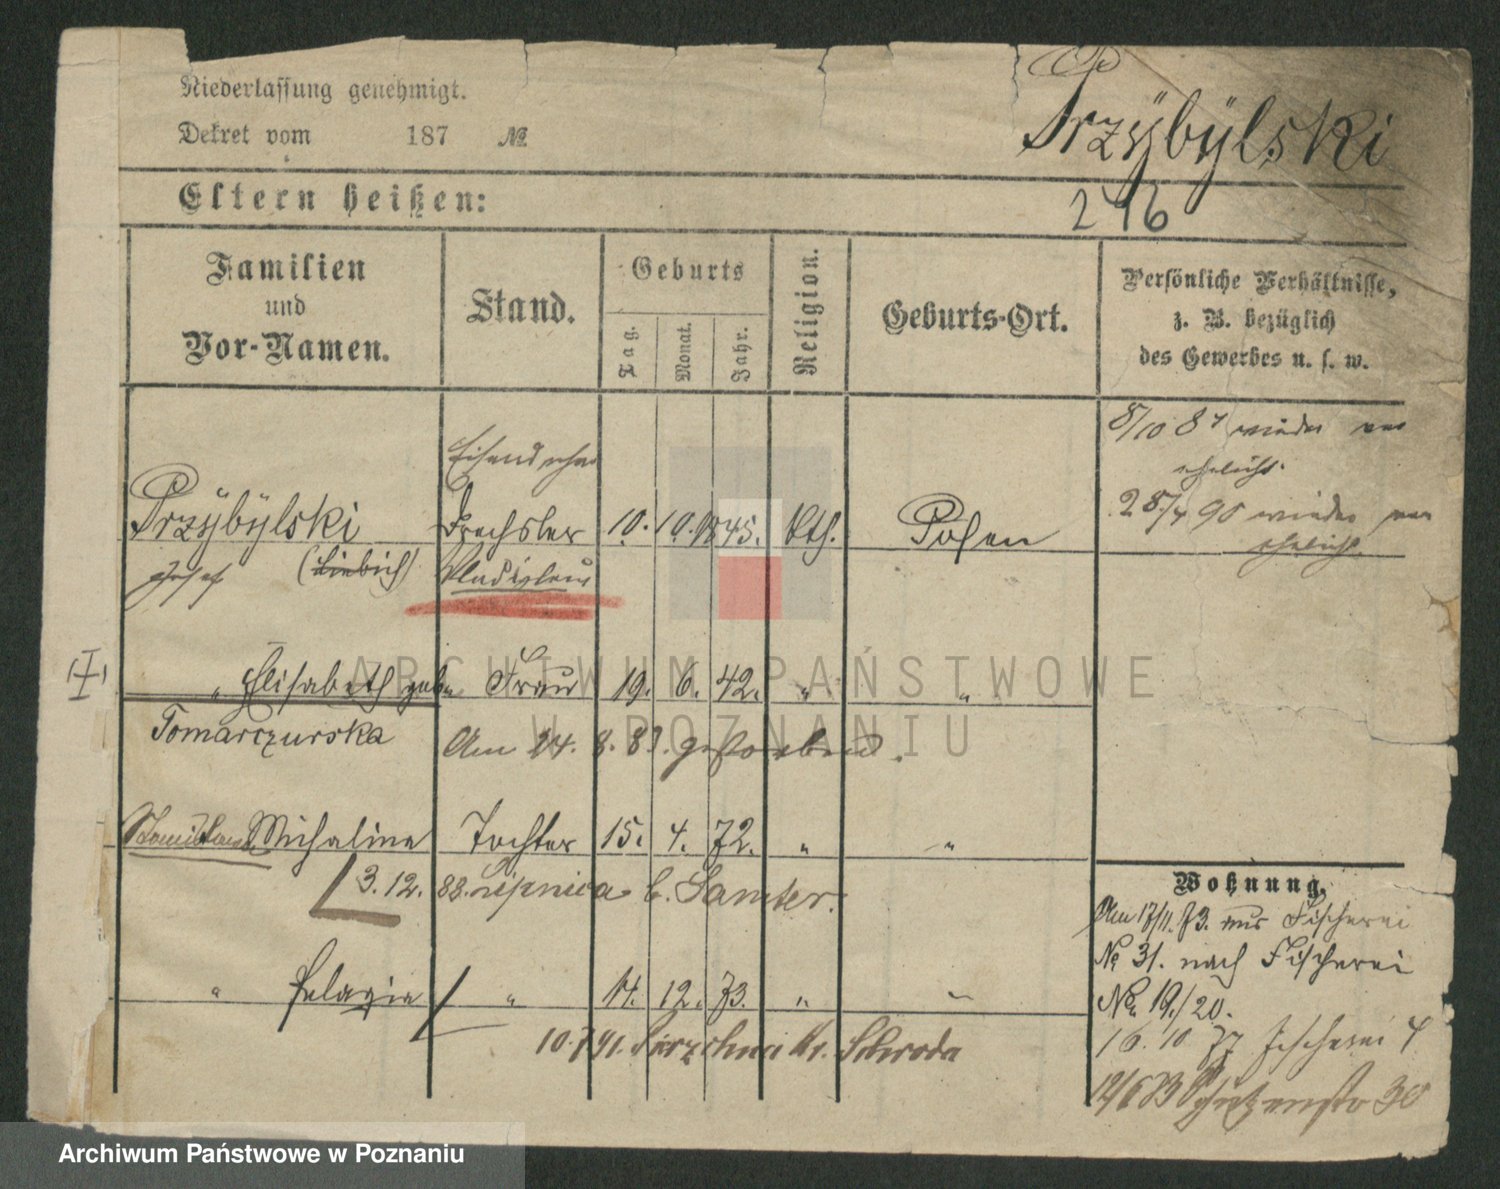 Niederlassung genehmigt.
Dekret vom 187 №
Przÿbÿlski
246
Eltern heißen:
Familien
und
Vor-Namen.
Stand.
Geburts
Tag.
Monat.
Jahr.
Religion.
Geburts-Ort.
Persönliche Verhältnisse,
z. B. bezüglich
des Gewerbes u. s. w.
8/10 87 wieder ver
ehelicht.
28/4 90 wieder ver
ehelicht.
Przÿbÿlski Drechsler 10. 10. 1845. kth. Posen
Josef (Liebich) Wladislaus
" Elisabeth geb. Frau 19. 6. 42. " "
Tomarczurska Am 24. 8. 83. gestorben.
Stanislawa Michalina Tochter 15. 4. 72. " "
3. 12. 88. Lipnica b. Samter.
" Pelagia " 14. 12. 73. " "
10.7 91. Kr. Schroda
Wohnung.
Am 17/11. 73. aus Fischerei
№ 31. nach Fischerei
№ 19./20.
16. 10. 77 Fischerei 4
12/6 83 Schützenstr 30
ARCHIWUM PAŃSTWOWE
W POZNANIU
Archiwum Państwowe w Poznaniu